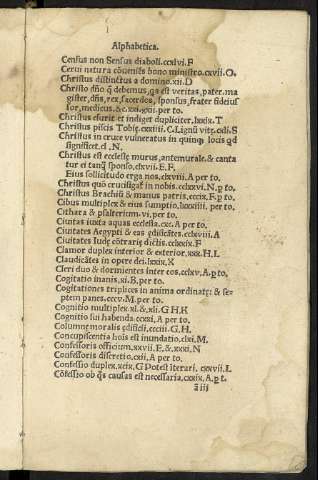 Alphabetica.
Census non Sensus diaboli.ccxlvi.F
Cerui natura cōueniēs bono ministro.cxvii.O.
Christus distinctus a domino.xii.D
Christo dño ꝗ debemus, ꝗa est veritas, pater. ma
gister, dñs, rex, sacerdos, sponsus, frater fideius
sor, medicus, &c. per to.
Christus esurit et indiget dupliciter.lxxix.T
Christus piscis Tobię.cxxiiii. C. Lignū vitę.cdi.S
Christus in cruce vulneratus in quinꝗ locis ꝗd
significet.cl.N,
Christus est ecclesię murus, antemurale. & canta
tur ei tanꝗ sponso.clxvii.E.F.
Eius sollicitudo erga nos.clxviii.A per to,
Christus quō crucifigat in nobis.cclxxvi.N.p to,
Christus Brachiū & manus patris.cccix.F.p to,
Cibus multiplex & eius sumptio.lxxxiiii. per to,
Cithara & psalterium.vi, per to,
Ciuitas iuxta aquas ecclesia.cxc.A per to,
Ciuitates Aegypti & eas ꝗdiscētes.cclxviii.A
Ciuitates Iudę cōtrariis dictis.cclxix.F
Clamor duplex interior & exterior.xxx.H.L
Claudicātes in opere dei.lxxix.X
Cleri duo & dormientes inter eos.cclxv.A.p to,
Cogitatio inanis.xi.B, per to,
Cogitationes triplices in anima ordinatę: & se/
ptem panes.cccv.M. per to.
Cognitio multiplex.xl.&.xli.G.H.K
Cognitio sui habenda.ccxxi.A per to.
Columnę moralis ꝗdisticū.cccii.G.H.
Concupiscentia hois est inundatio.clxi.M.
Confessoris officium.xxvii.E,&.xxxi.N
Confessoris discretio.cxii,A per to.
Confessio duplex.xcix,G Potest iterari. cxxvii.L
Cōfessio ob ꝗs causas est necessaria.cxxix,A.p t.
a iii